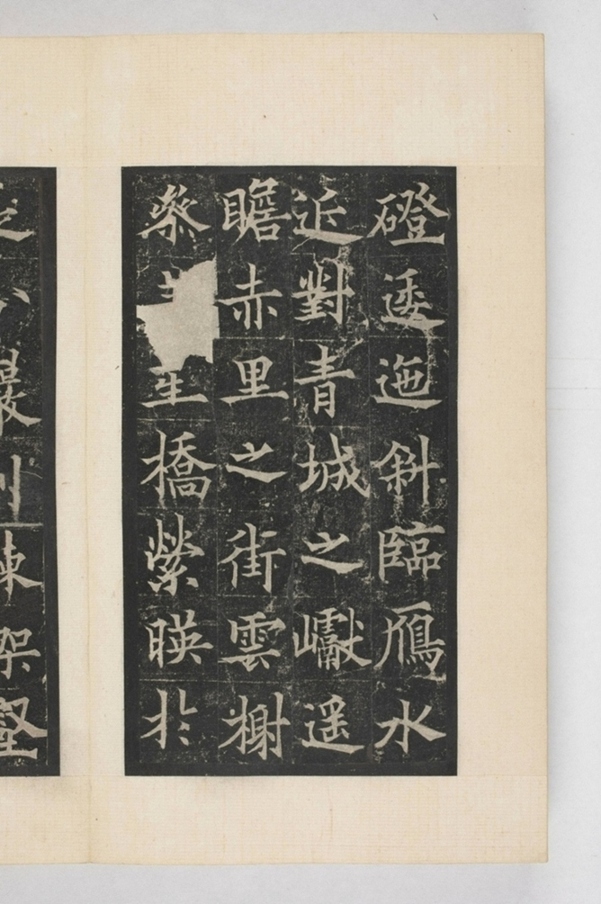 磴逶迤斜臨鴈水
近對青城之巘遥
瞻赤里之街雲榭
叅星橋縈暎於